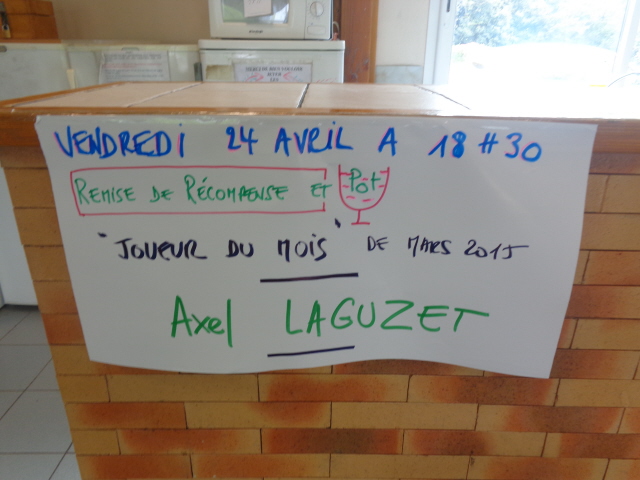 VENDREDI 24 AVRIL A 18H30
REMISE DE RÉCOMPENSE ET Pot
"JOUEUR DU MOIS" DE MARS 2015
Axel LAGUZET